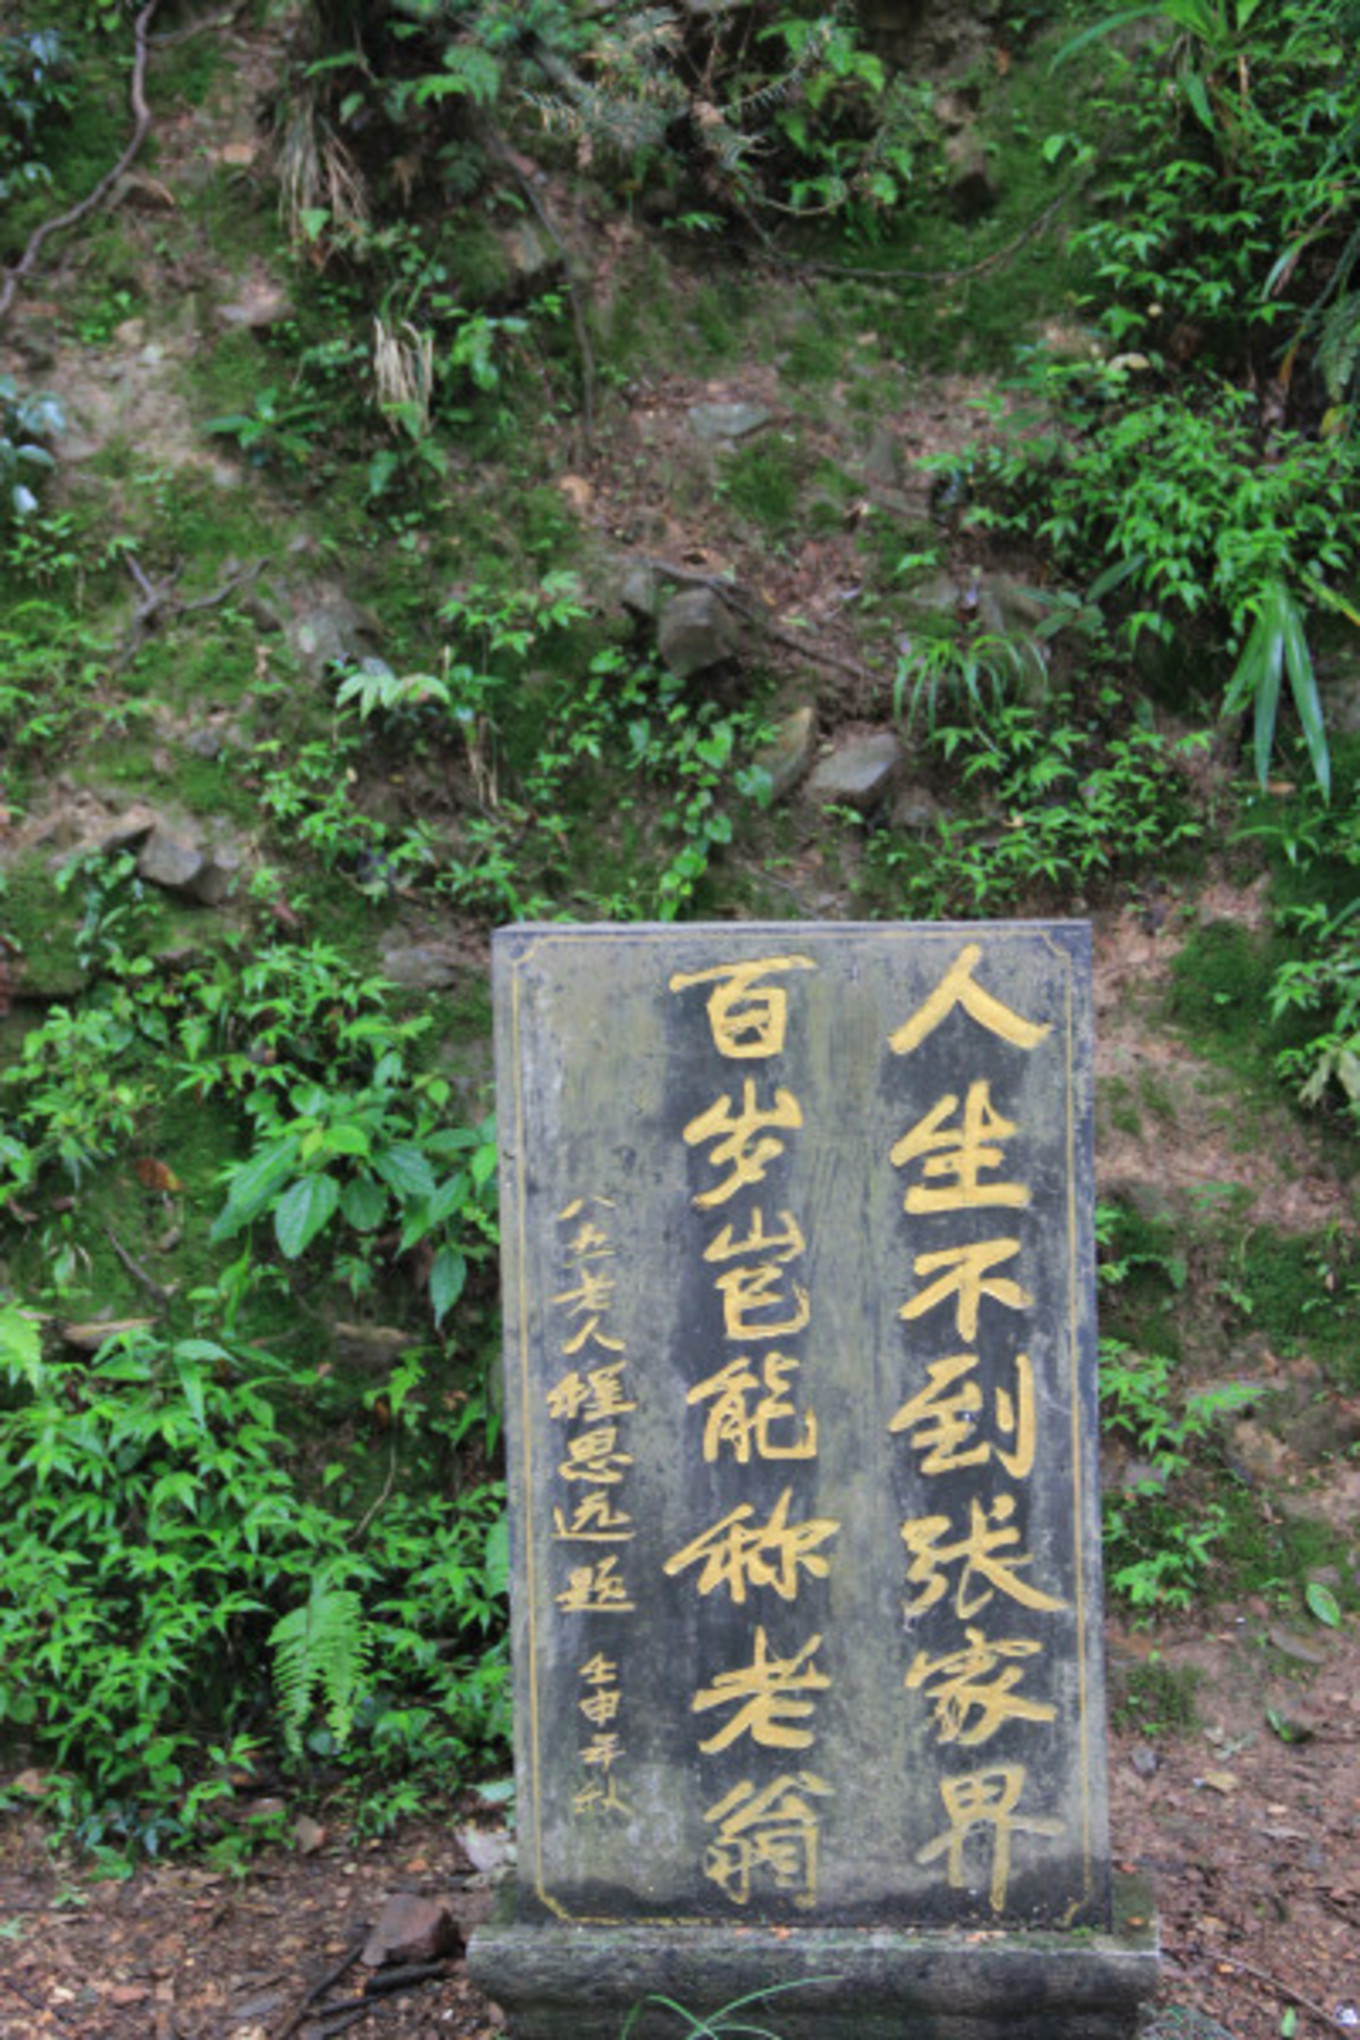 人生不到张家界
百岁岂能称老翁
八五老人程思远题 壬申年秋